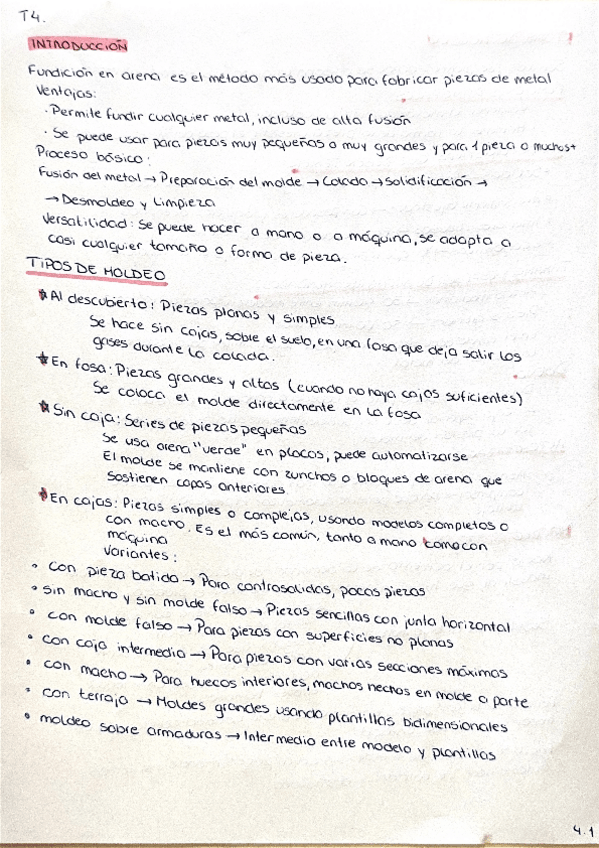 T4.
INTRODUCCIÓN
Fundición en arena es el método más usado para fabricar piezas de metal
Ventajas:
· Permite fundir cualquier metal, incluso de alta fusión
· Se puede usar para piezas muy pequeñas o muy grandes y para 1 pieza o muchas+
Proceso básico:
Fusión del metal → Preparación del molde → Colada → Solidificación →
→ Desmoldeo y Limpieza
Versatilidad: Se puede hacer a mano o a máquina, se adapta a
casi cualquier tamaño o forma de pieza.
TIPOS DE MOLDEO
* Al descubierto: Piezas planas y simples
Se hace sin cajas, sobre el suelo, en una fosa que deja salir los
gases durante la colada.
* En fosa: Piezas grandes y altas (cuando no haya cajas suficientes)
Se coloca el molde directamente en la fosa
* Sin caja: Series de piezas pequeñas
Se usa arena "verde" en placas, puede automatizarse
El molde se mantiene con zunchos o bloques de arena que
sostienen capas anteriores
* En cajas: Piezas simples o complejas, usando modelos completos o
con macho. Es el más común, tanto a mano como con
máquina
Variantes:
• con pieza batida → Para contrasalidas, pocas piezas
• sin macho y sin molde falso → Piezas sencillas con junta horizontal
• con molde falso → Para piezas con superficies no planas
• con caja intermedia → Para piezas con varias secciones máximas
• con macho → Para huecos interiores, machos hechos en molde a parte
• con terraja → Moldes grandes usando plantillas bidimensionales
• moldeo sobre armaduras → Intermedio entre modelo y plantillas
4.1